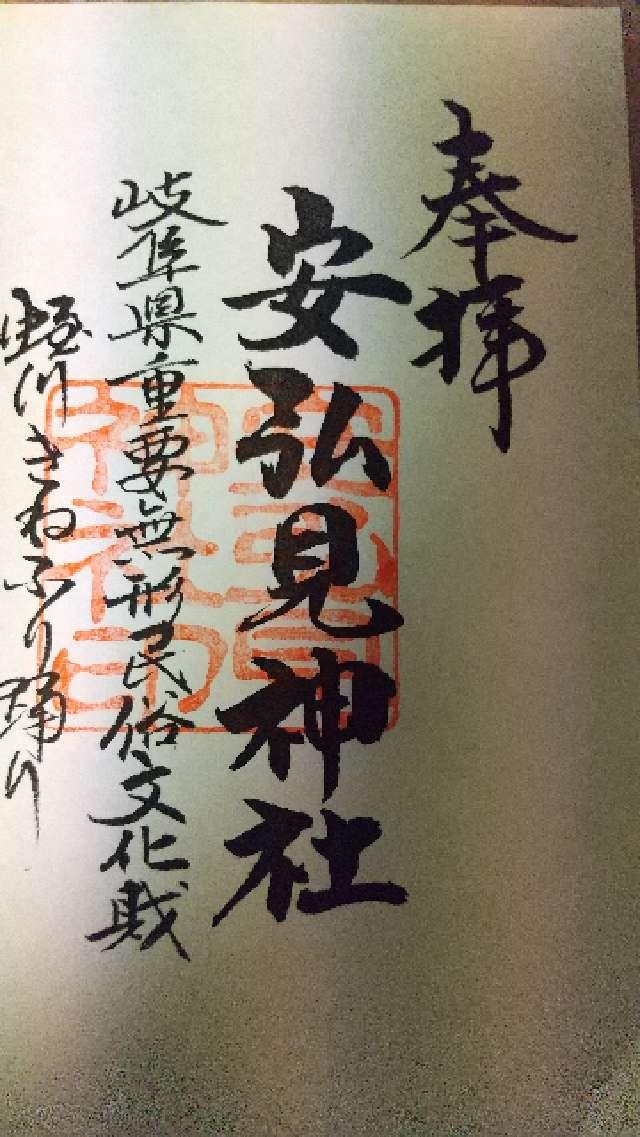 奉拝
安弘見神社
岐阜県重要無形民俗文化財
蛭川きねふり踊り
安弘見神社印